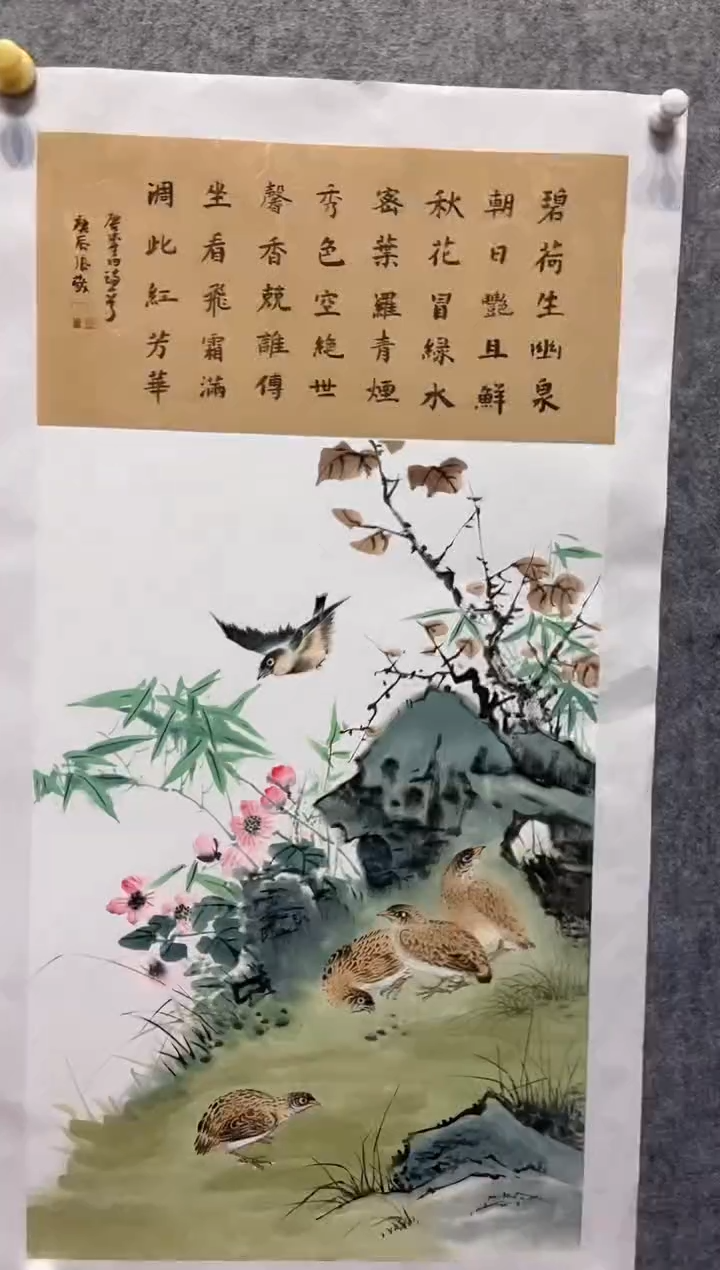 碧荷生幽泉
朝日艷且鮮
秋花冒綠水
密葉羅青煙
秀色空絕世
馨香競誰傳
坐看飛霜滿
凋此紅芳華
庚辰張